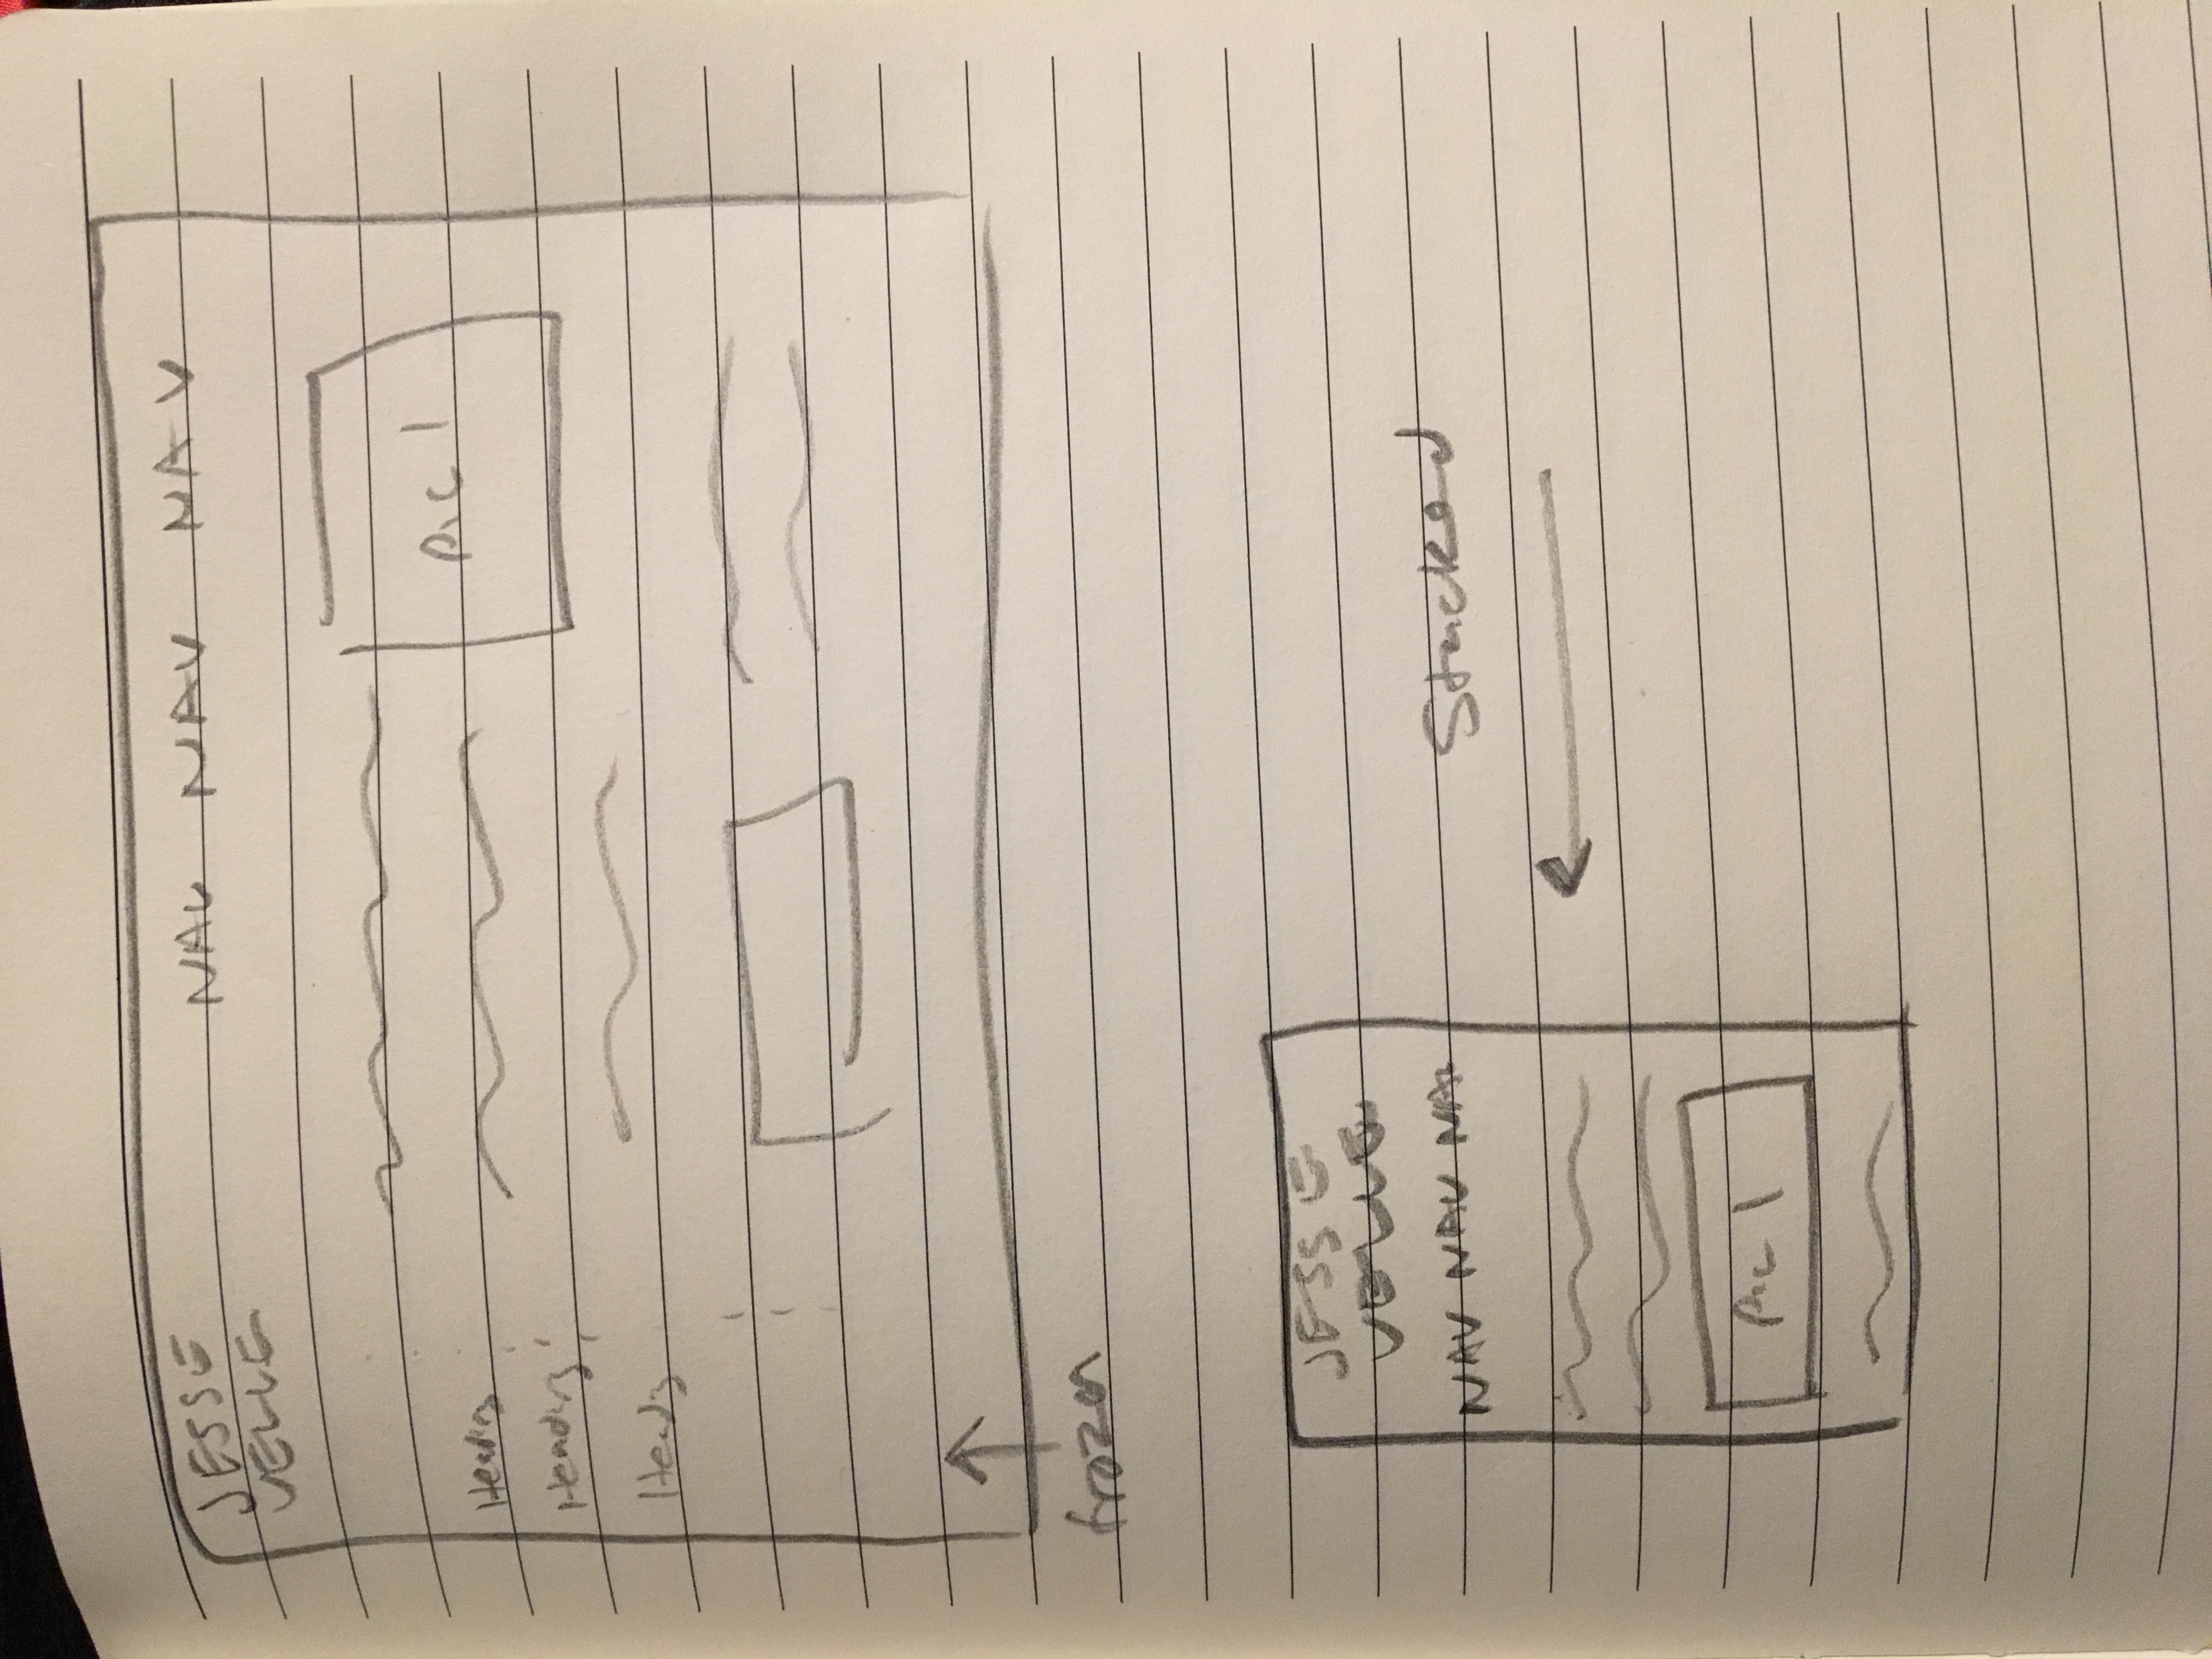 JESSE
VELLE
NAV NAV NAV
Pic 1
Heading
Heading
Heading
frozen
JESSE
VELLE
NAV NAV NAV
Stacked
Pic 1